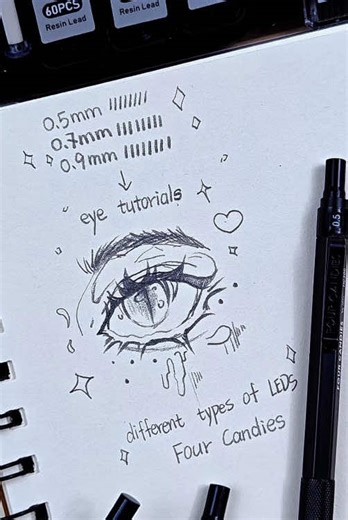 60PCS
Resin Lead
Resin Lead
Resin Lead
0.5mm
0.7mm
0.9mm
eye tutorials
0.5
FOUR CANDIES
different types of LEDS
Four Candies